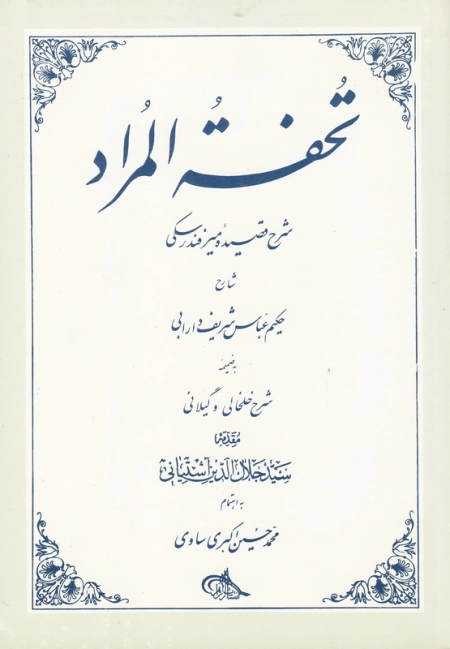 تُحفةُ المُراد
شرح قصیدهٔ میرفندرسکی
شارح
حکیم عباس شریف دارابی
به ضمیمه
شرح خلخالی و گیلانی
مقدمه
سید جلال الدین آشتیانی
به اهتمام
محمد حسین اکبری ساوی